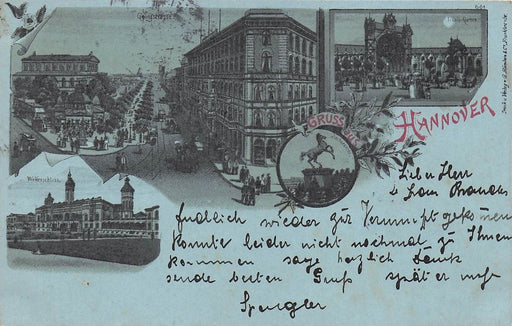 Georgstrasse
GRUSS aus
HANNOVER
Welfenschloss.
Lieber Herr
& Frau
Endlich wieder zur Vernunft gekommen
konnte leider nicht nochmal zu Ihnen
kommen sage herzlich Dank
sende besten Gruß später mehr
Spengler